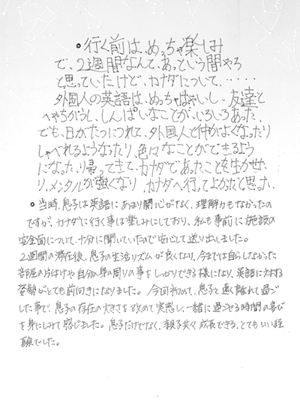 ・行く前は、めっちゃ楽しみ
で、2週間なんて、あっという間やろ
と思っていたけど、カナダについて・・・・・
外国人の英語は、めっちゃはやいし、友達と
へやちがうし、しんぱいなことが、いろいろあった。
でも、日がたつにつれて、外国人と仲がよくなったり
しゃべれるようなったり、色々なことができるよう
になった。帰ってきて、カナダであったことを生かせた
り、メンタルが強くなり、カナダへ行ってよかったと思った。
・当時、息子は英語にあまり関心がなく、理解力もなかったの
ですが、カナダに行く事は楽しみにしており、私も事前に施設の
安全面について、十分に聞いていたので安心して送り出しました。
2週間の滞在後、息子の生活リズムが良くなり、今までは自らしなかった
部屋の片付けや自分の身の周りの事をしっかりできる様になり、英語に対する
姿勢がとても前向きになりました。今回初めて、息子と遠く離れて過ご
した事で、息子の存在の大きさを改めて実感し、一緒に過ごせる時間の喜び
を身にしみて感じました。息子だけでなく、親子共々成長できる、とてもいい経
験でした。